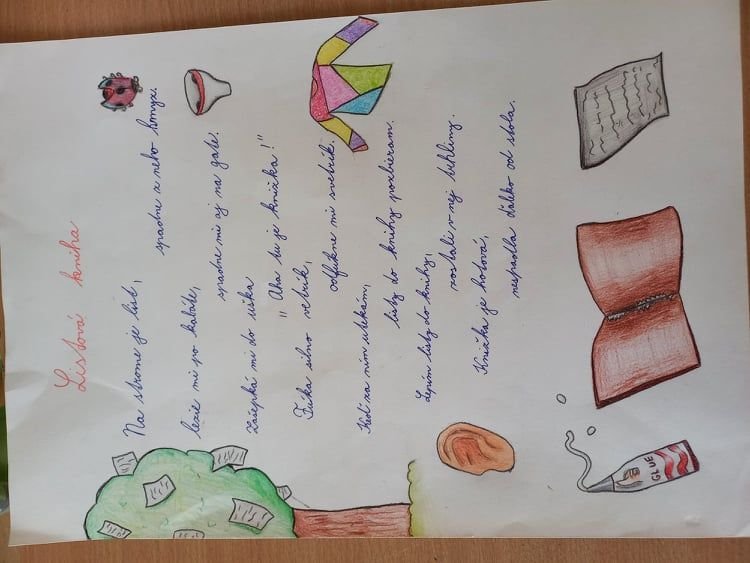 Listová kniha
Na strome je list,
spadne z neho hmyz.
lezie mi po kabáte,
spadne mi aj na gate.
Zašepká mi do uška
"Aha tu je knižka!"
Fúka silno vetrík,
odfúkne mi svetrík.
Keď za ním utekám,
listy do knihy pozbieram.
Lepím listy do knihy,
zostali v nej
Knižka je hotová,
nespadla ďaleko od stola.
GLUE